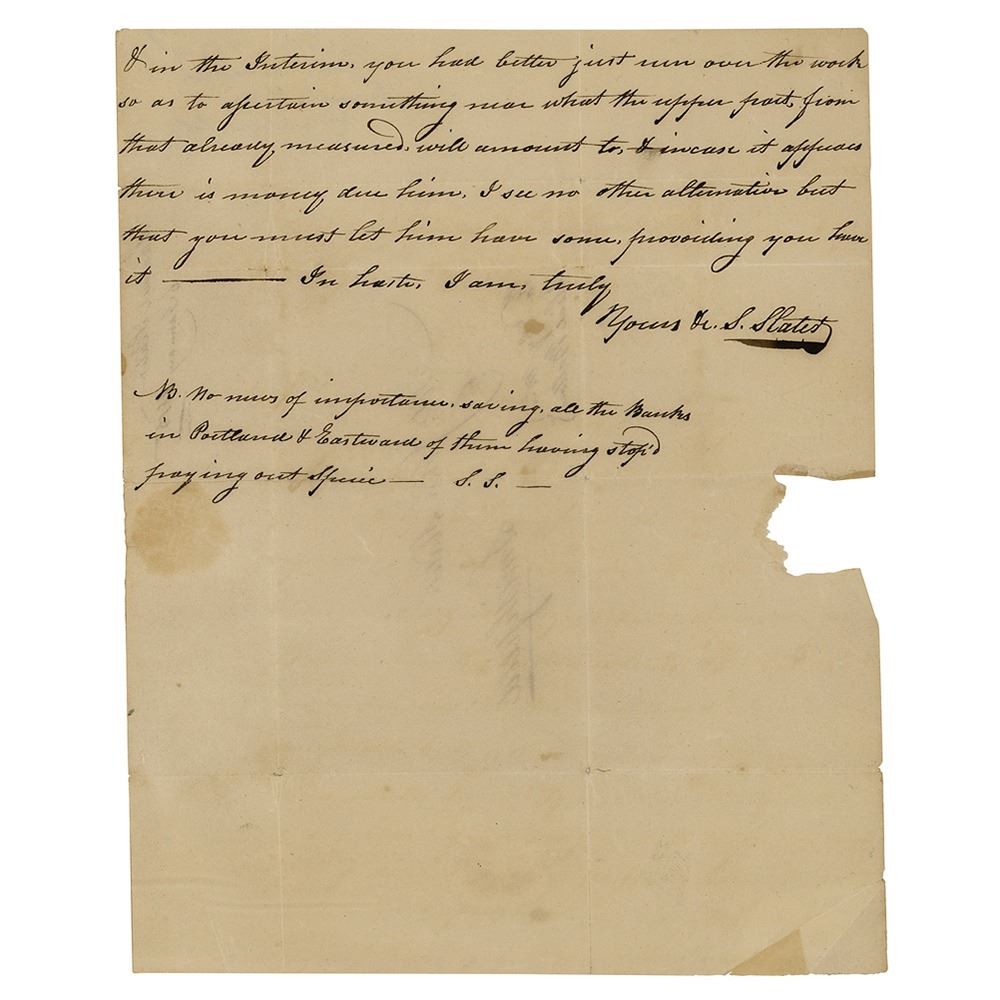 & in the Interim, you had better just run over the work
so as to assertain something near what the upper part, from
that already measured, will amount to, & incase it appears
there is money due him, I see no other alternative but
that you must let him have some, provoiding you have
it ——— In haste, I am, truly
Yours &c. S. Slater
NB. No news of importance, saving, all the Banks
in Portland & Eastward of them having stop'd
paying out Specie — S. S. —